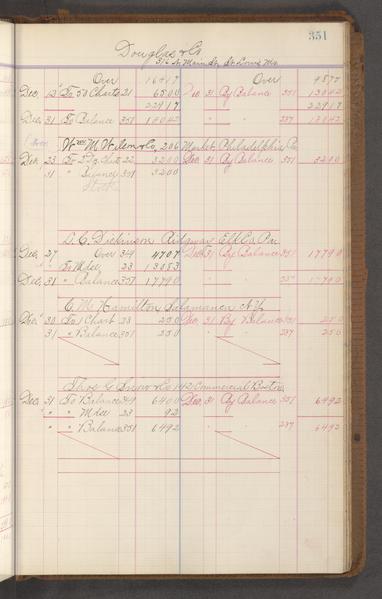 351
Douglas & Co
312 N. Main St, St Louis Mo
Over 16417 Over 9875
Dec. 12 To 50 Charts 21 6500 Dec. 31 By Balance 351 13042
22917 22917
Dec. 31 To Balance 351 13042 " " 237 13042
Wm M. Wilson & Co, 206 Market, Philadelphia Pa
Dec. 23 To 22 3200 Dec. 31 By Balance 351 3200
31 " Balance 351 3200
L. C. Dickinson Ridgway Elk Co. Pa.
Dec. 27 Over 4707 Dec. 31 By Balance 351 17790
" " To Mdse 23 13083
Dec. 31 " Balance 351 17790 " " 237 17790
C. M. Hamilton Salamanca N.Y.
Dec. 30 To 1 Chart 23 250 Dec. 31 By Balance 351 250
31 " Balance 351 250 " " 237 250
Thos G. Snow & Co 142 Commercial Boston
Dec. 31 To Balance 349 6400 Dec. 31 By Balance 351 6492
" " Mdse 23 92
" " Balance 351 6492 " " 237 6492